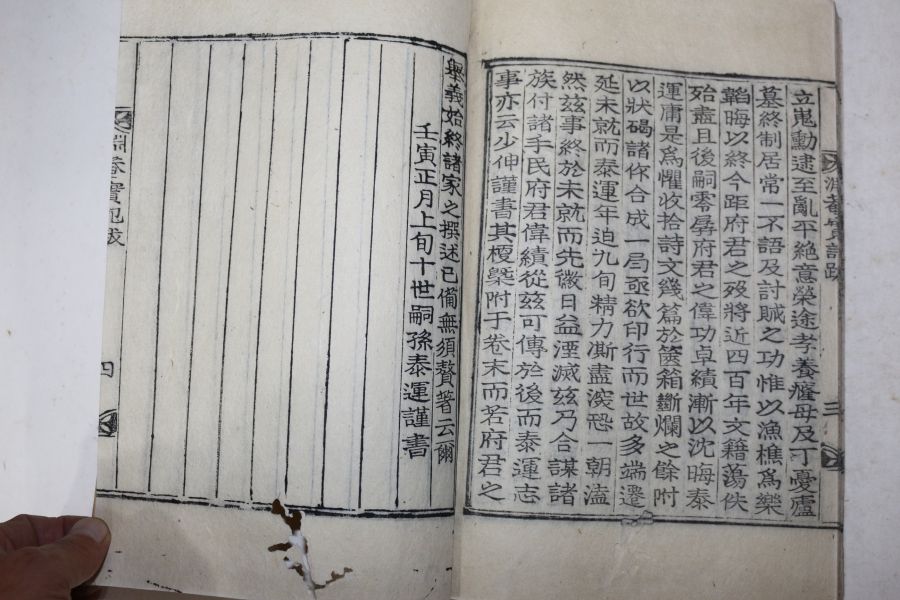 立嵬勳逮至亂平絶意榮途孝養癠母及丁憂廬
墓終制居常一不語及討賊之功惟以漁樵爲樂
韜晦以終今距府君之歿將近四百年文籍蕩佚
殆盡且後嗣零孱府君之偉功卓績漸以沈晦泰
運庸是爲懼收拾詩文幾篇於篋箱斷爛之餘附
以狀碣諸作合成一局亟欲印行而世故多端遷
延未就而泰運年迫九旬精力澌盡深恐一朝溘
然玆事終於未就而先徽日益湮滅玆乃合謀諸
族付諸手民府君偉績從玆可傳於後而泰運志
事亦云少伸謹書其梗槩附于卷末而若府君之
三
擧義始終諸家之撰述已備無須贅著云爾
壬寅正月上旬十世嗣孫泰運謹書
四